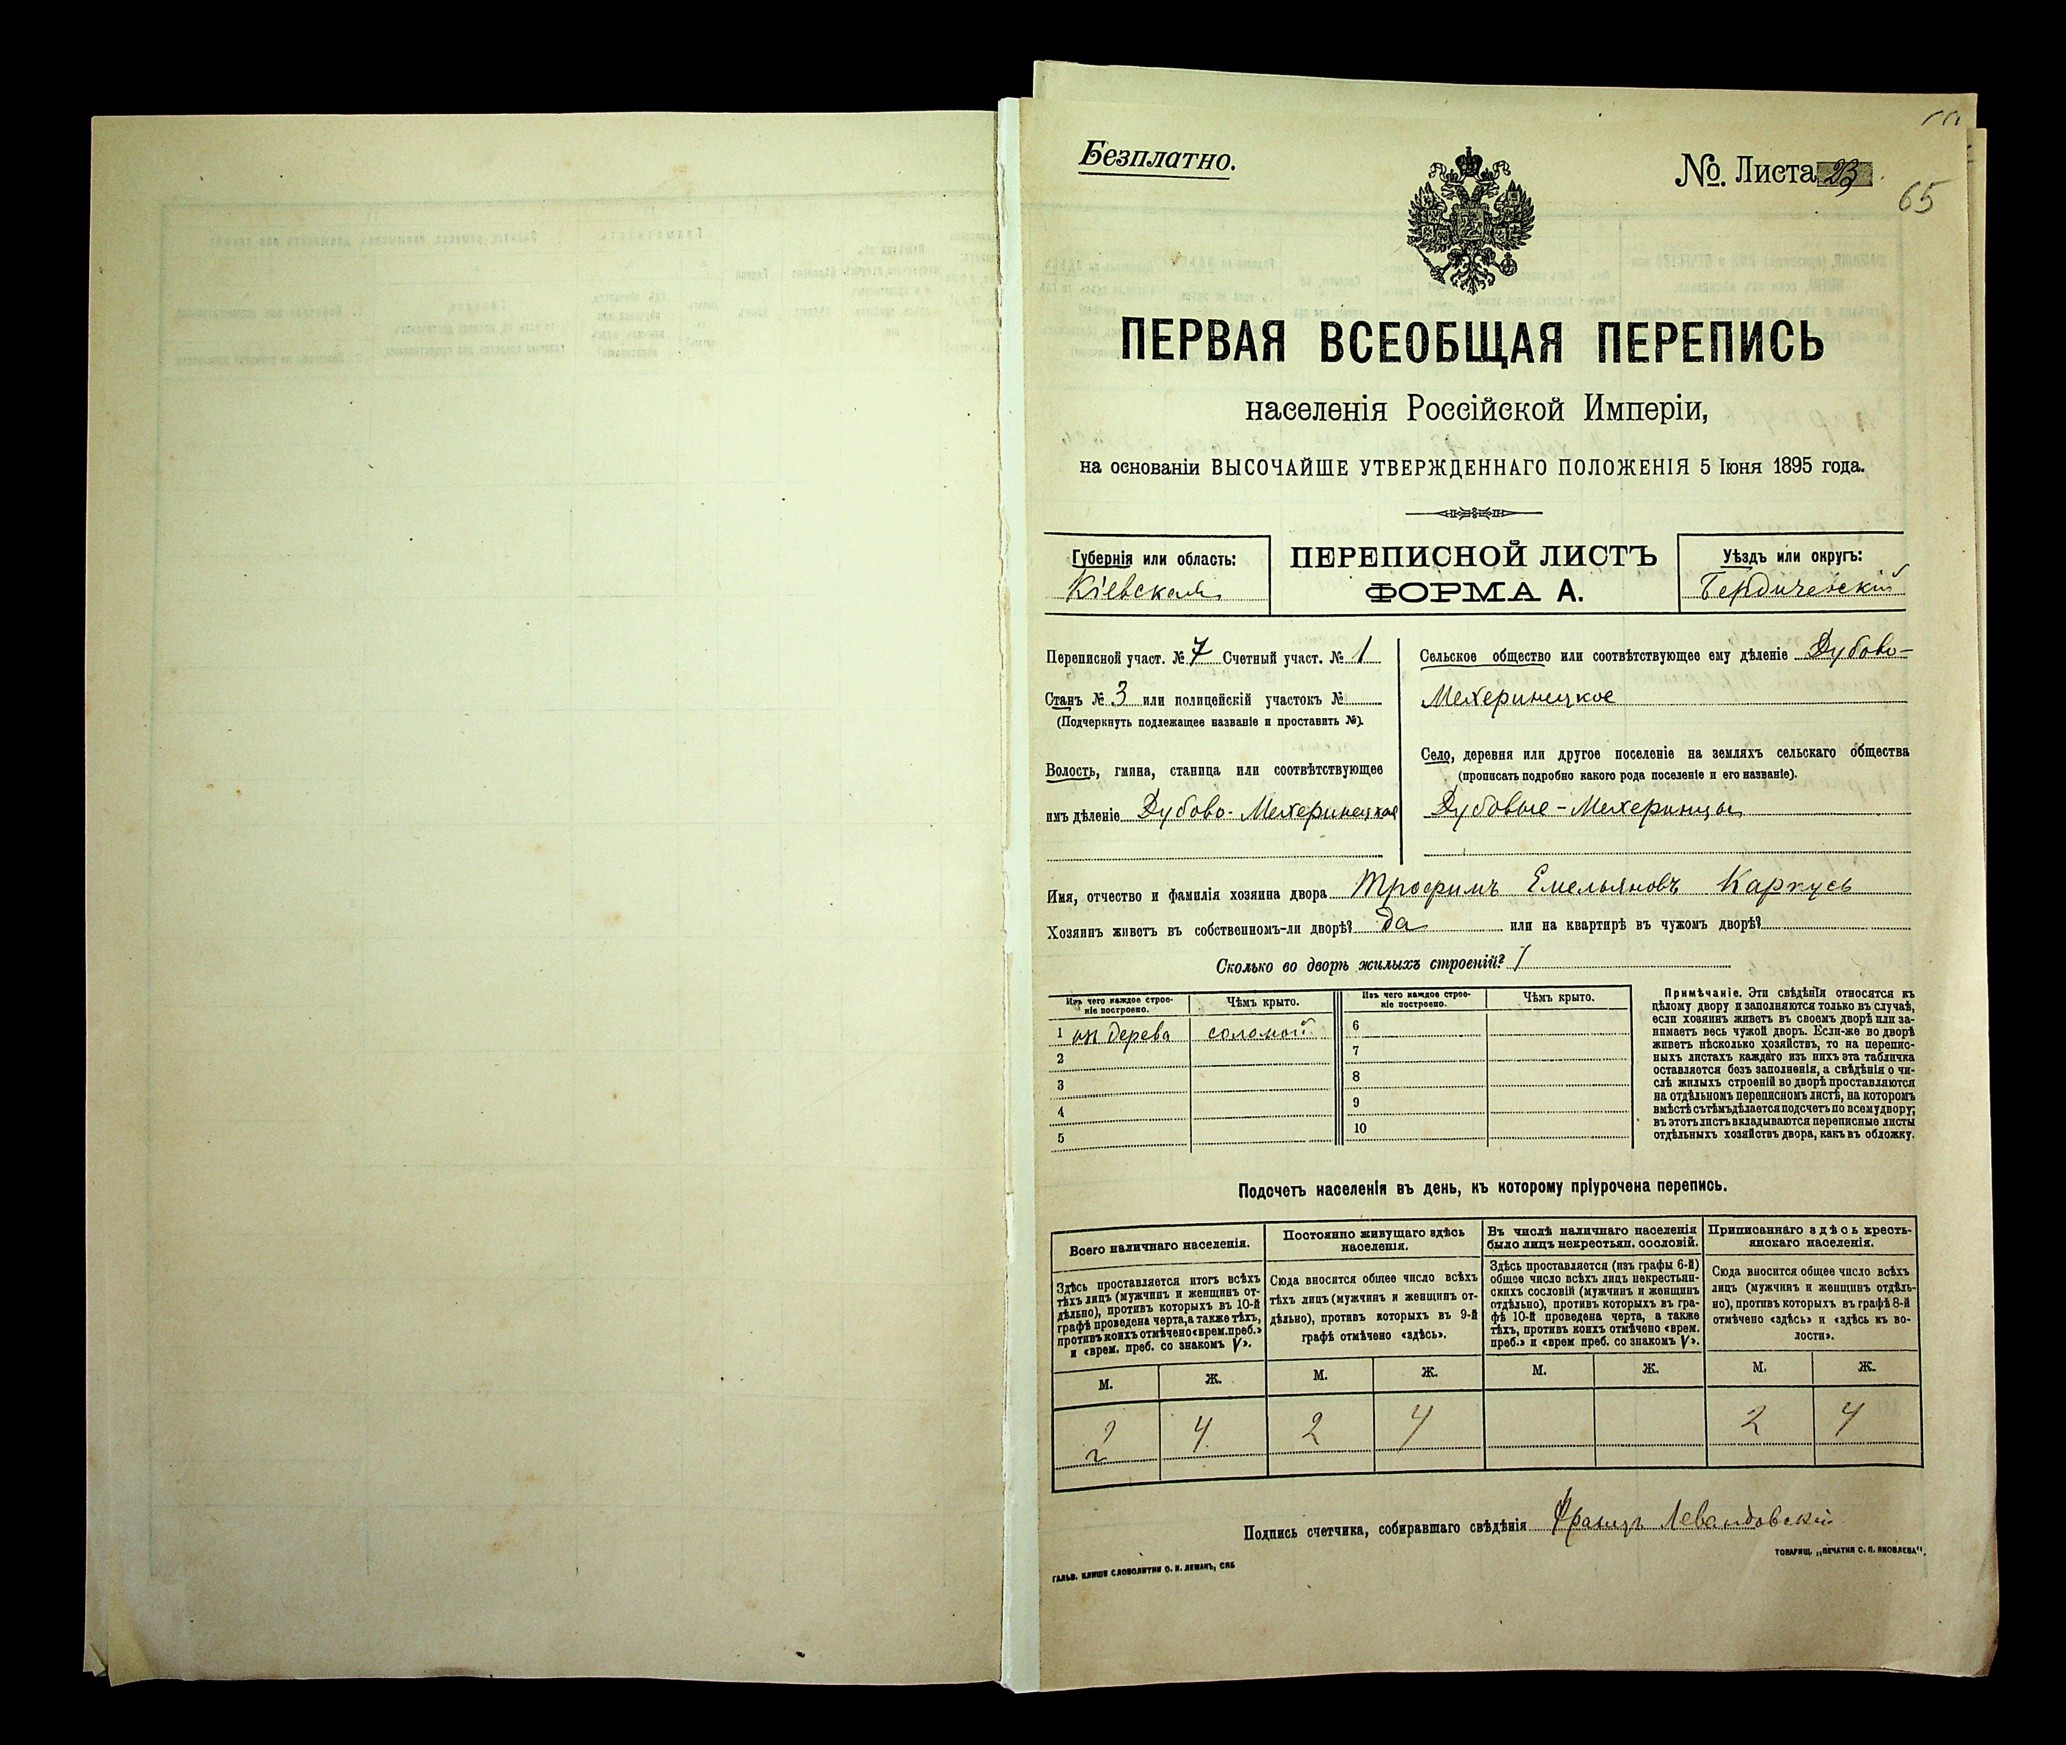 Безплатно.
№. Листа 23
65
ПЕРВАЯ ВСЕОБЩАЯ ПЕРЕПИСЬ
населенія Россійской Имперіи,
на основаніи ВЫСОЧАЙШЕ УТВЕРЖДЕННАГО ПОЛОЖЕНІЯ 5 Іюня 1895 года.
Губернія или область:
Кіевская
ПЕРЕПИСНОЙ ЛИСТЪ
ФОРМА А.
Уѣздъ или округъ:
Бердичевскій
Переписной участ. № 7 Счетный участ. № 1
Станъ № 3 или полицейскій участокъ №
(Подчеркнуть подлежащее названіе и проставить №).
Волость, гмина, станица или соотвѣтствующее
имъ дѣленіе Дубово-Мехеринецкая
Сельское общество или соотвѣтствующее ему дѣленіе Дубово-
Мехеринецкое
Село, деревня или другое поселеніе на земляхъ сельскаго общества
(прописать подробно какого рода поселеніе и его названіе).
Дубовые-Мехеринцы
Имя, отчество и фамилія хозяина двора Трофимъ Емельяновъ Каркусь
Хозяинъ живетъ въ собственномъ-ли дворѣ? да или на квартирѣ въ чужомъ дворѣ?
Сколько во дворѣ жилыхъ строеній? 1
Изъ чего каждое строе-
ніе построено.
Чѣмъ крыто.
Изъ чего каждое строе-
ніе построено.
Чѣмъ крыто.
1 изъ дерева соломой 6
2 7
3 8
4 9
5 10
Примѣчаніе. Эти свѣдѣнія относятся къ
цѣлому двору и заполняются только въ случаѣ,
если хозяинъ живетъ въ своемъ дворѣ или за-
нимаетъ весь чужой дворъ. Если-же во дворѣ
живетъ нѣсколько хозяйствъ, то на перепис-
ныхъ листахъ каждаго изъ нихъ эта табличка
оставляется безъ заполненія, а свѣдѣнія о чи-
слѣ жилыхъ строеній во дворѣ проставляются
на отдѣльномъ переписномъ листѣ, на которомъ
вмѣстѣ съ тѣмъ дѣлается подсчетъ по всему двору;
въ этотъ листъ вкладываются переписные листы
отдѣльныхъ хозяйствъ двора, какъ въ обложку.
Подсчетъ населенія въ день, къ которому пріурочена перепись.
Всего наличнаго населенія.
Здѣсь проставляется итогъ всѣхъ
тѣхъ лицъ (мужчинъ и женщинъ от-
дѣльно), противъ которыхъ въ 10-й
графѣ проведена черта, а также тѣхъ,
противъ коихъ отмѣчено «врем. преб.»
и «врем. преб. со знакомъ V».
Постоянно живущаго здѣсь
населенія.
Сюда вносится общее число всѣхъ
тѣхъ лицъ (мужчинъ и женщинъ от-
дѣльно), противъ которыхъ въ 9-й
графѣ отмѣчено «здѣсь».
Въ числѣ наличнаго населенія
было лицъ некрестьян. сословій.
Здѣсь проставляется (изъ графы 6-й)
общее число всѣхъ лицъ некрестьян-
скихъ сословій (мужчинъ и женщинъ
отдѣльно), противъ которыхъ въ гра-
фѣ 10-й проведена черта, а также
тѣхъ, противъ коихъ отмѣчено «врем.
преб.» и «врем преб. со знакомъ V».
Приписаннаго здѣсь кресть-
янскаго населенія.
Сюда вносится общее число всѣхъ
лицъ (мужчинъ и женщинъ отдѣль-
но), противъ которыхъ въ графѣ 8-й
отмѣчено «здѣсь» и «здѣсь къ во-
лости».
М. Ж. М. Ж. М. Ж. М. Ж.
2 4 2 4 2 4
Подпись счетчика, собиравшаго свѣдѣнія Францъ Левандовскій
ГАЛЬВ. КЛИШЕ СЛОВОЛИТНИ О. И. ЛЕМАНЪ, СПБ
ТОВАРИЩ. „ПЕЧАТНЯ С. П. ЯКОВЛЕВА".